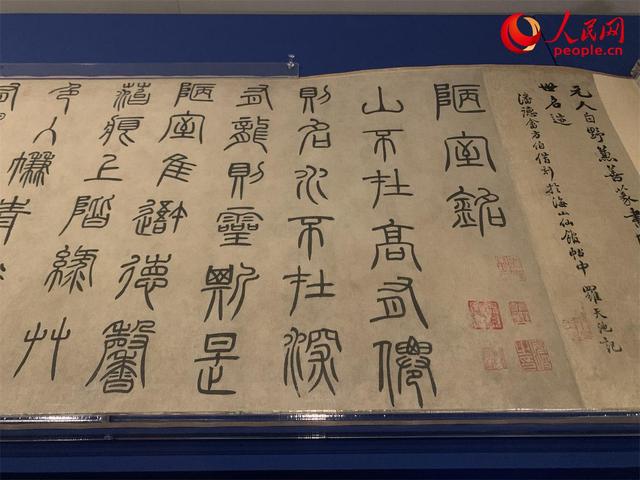 人民网
people.cn
元人白野兼善篆書
世名迹
潘德畬方伯借刻於海山仙館帖中 羅天池記
陋室銘
山不在高有僊
則名水不在深
有龍則靈斯是
陋室惟吾德馨
苔痕上階緑艸
色入簾青